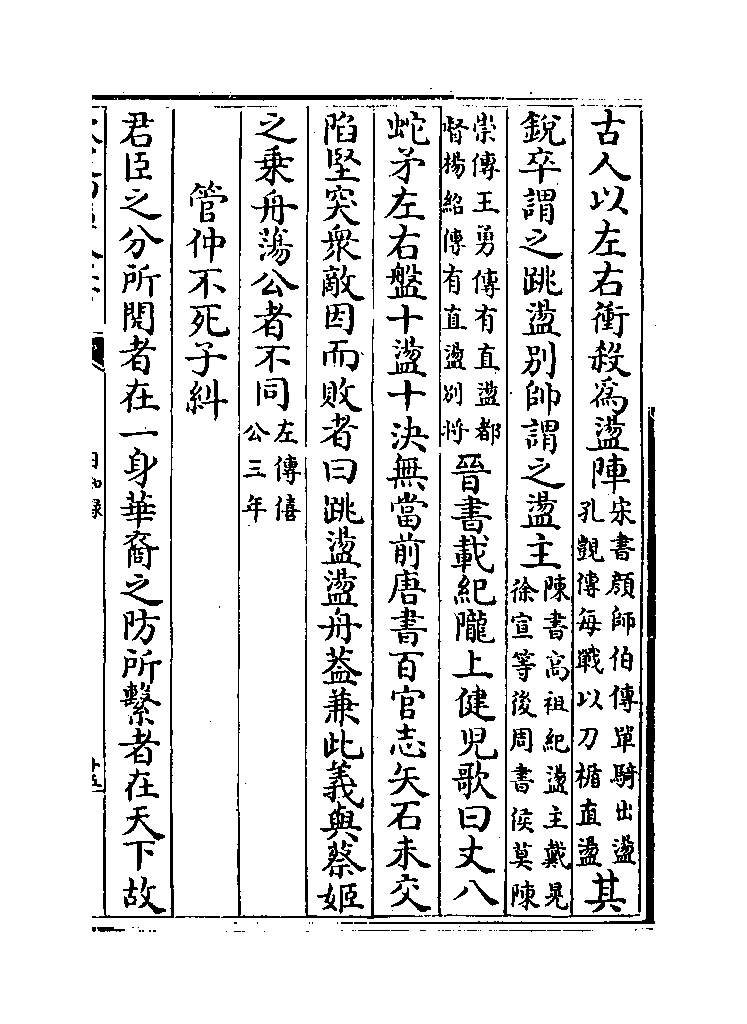 古人以左右衝殺為盪陣宋書顔師伯傳單騎出盪孔覬傳每戰以刀楯直盪其
銳卒謂之跳盪別帥謂之盪主陳書高祖紀盪主戴晃徐宣等後周書侯莫陳
崇傳王勇傳有直盪都督楊紹傳有直盪別將晉書載紀隴上健兒歌曰丈八
蛇矛左右盤十盪十決無當前唐書百官志矢石未交
陷堅突衆敵因而敗者曰跳盪盪舟葢兼此義與蔡姬
之乗舟蕩公者不同左傳僖公三年
管仲不死子糾
君臣之分所関者在一身華裔之防所繫者在天下故
日知録
十五